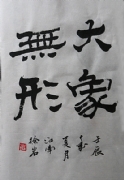 大象
無形
壬辰
夏月
徐岩